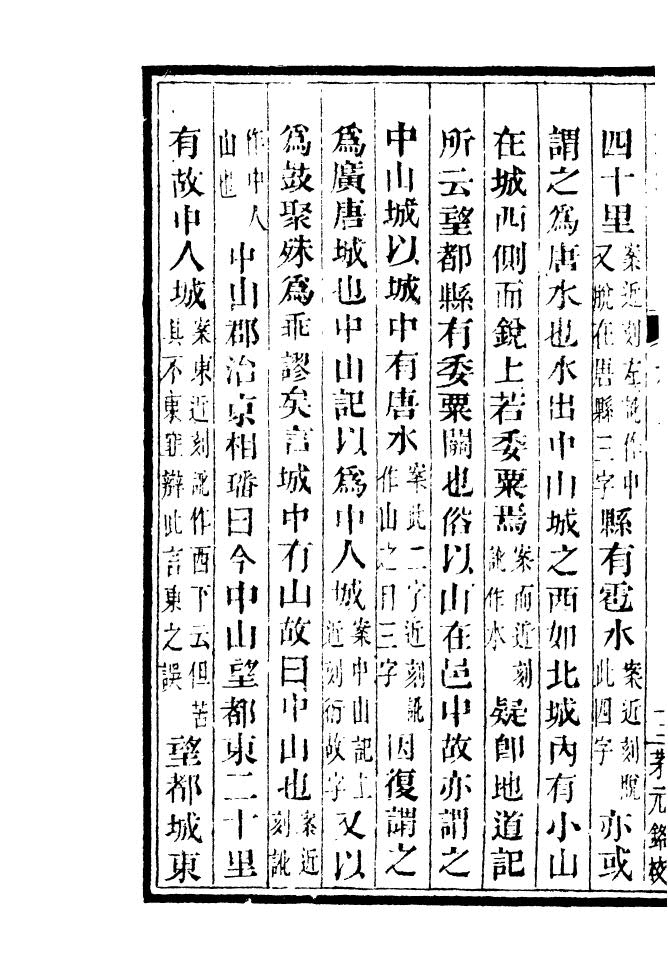 四十里案近刻左訛作中又脫在唐縣三字縣有雹水案近刻脫此四字亦或
謂之為唐水也水出中山城之西如北城內有小山
在城西側而銳上若委粟焉案而近刻訛作水疑卽地道記
所云望都縣有委粟關也俗以山在邑中故亦謂之
中山城以城中有唐水案此二字近刻訛作山之目三字因復謂之
為廣唐城也中山記以為中人城案中山記上近刻衍故字又以
為鼓聚殊為乖謬矣言城中有山故曰中山也案近刻訛
作中人山也中山郡治京相璠曰今中山望都東二十里
有故中人城案東近刻訛作西下云但苦其不東觀辯此言東之誤望都城東